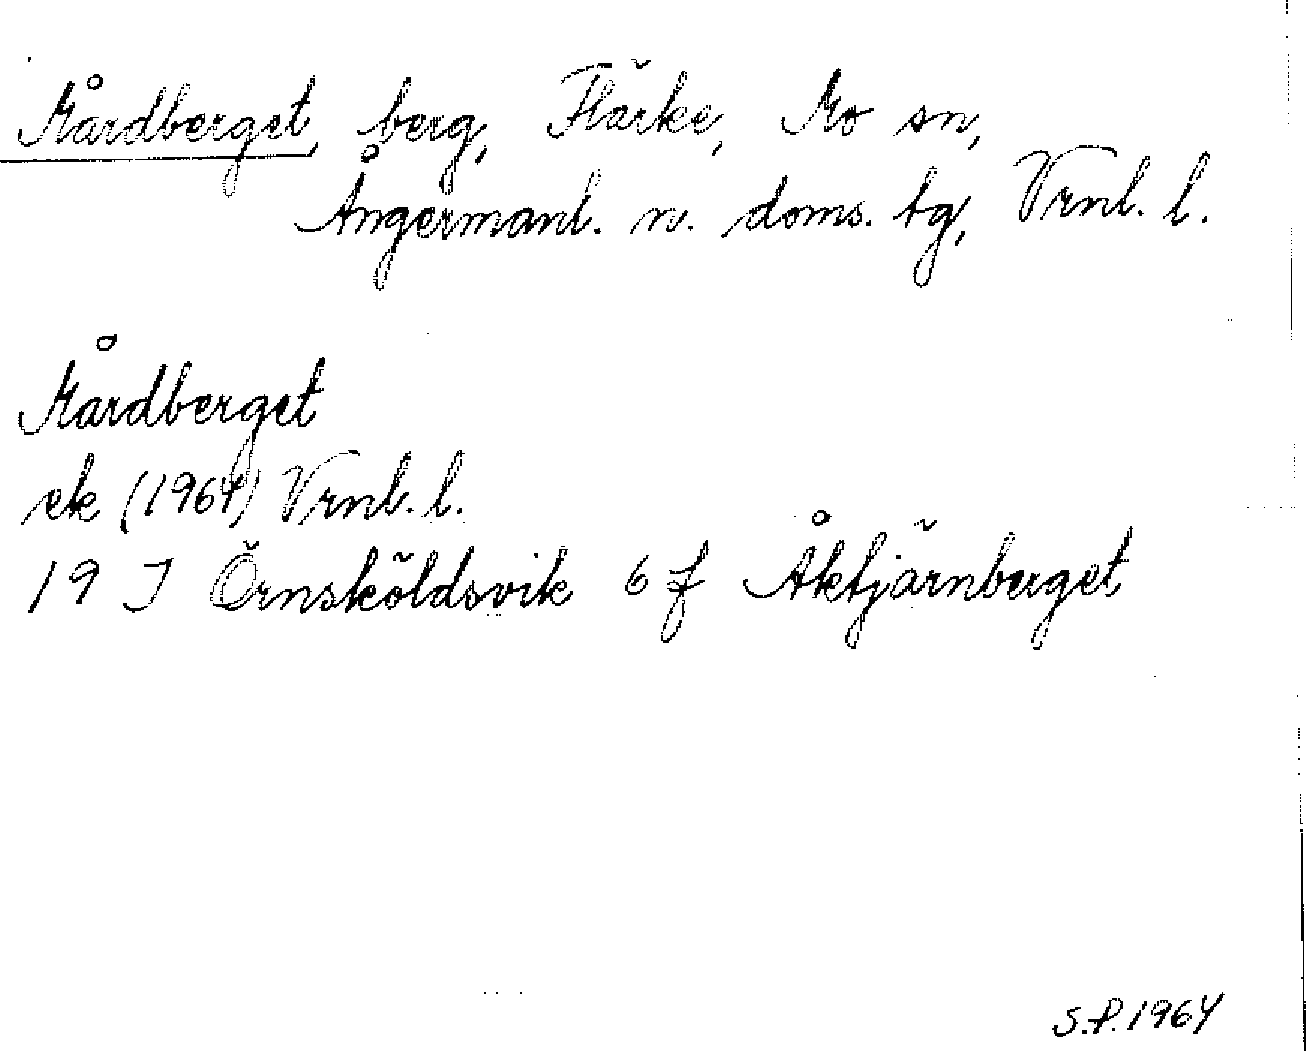 Mårdberget, berg, Flärke, Mo sn,
Ångermanl. n. doms. tg, Vrnl. l.
Mårdberget
ek (1964) Vrnl. l.
19 J Örnsköldsvik 6 f Åktjärnberget
S.P. 1964